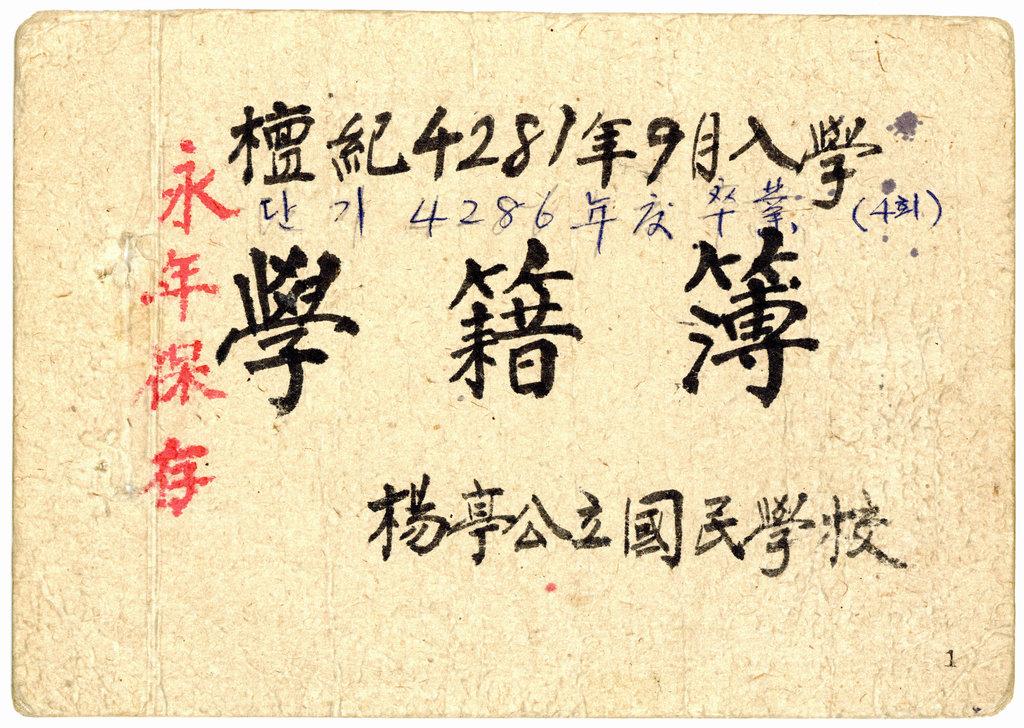 檀紀4281年9月入學
단기 4286年度 卒業 (4회)
學籍簿
楊亭公立國民學校
永年保存
1